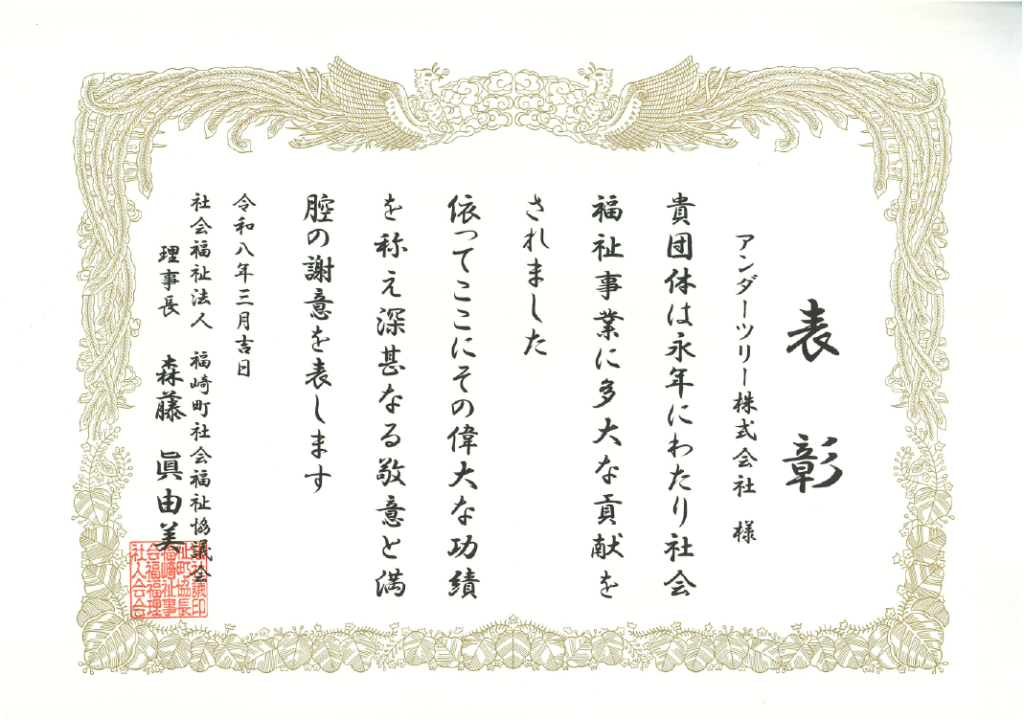 表彰
アンダーツリー株式会社 様
貴団体は永年にわたり社会
福祉事業に多大な貢献を
されました
依ってここにその偉大な功績
を称え深甚なる敬意と満
腔の謝意を表します
令和八年三月吉日
社会福祉法人 福崎町社会福祉協議会
理事長 森藤 眞由美